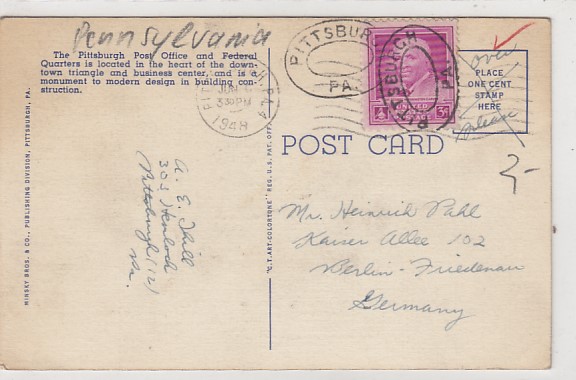 Pennsylvania
The Pittsburgh Post Office and Federal
Quarters is located in the heart of the down-
town triangle and business center, and is a
monument to modern design in building con-
struction.
3 30 PM
1948
PITTSBURGH
PA.
PITTSBURGH
PA.
UNITED
STATES
POSTAGE
3¢
over
please
PLACE
ONE CENT
STAMP
HERE
POST CARD
A. E. Thill
303 Hemlock
Pittsburgh (12)
Pa.
Mr. Heinrich Pahl
Kaiser Allee 102
Berlin-Friedenau
Germany
MINSKY BROS. & CO., PUBLISHING DIVISION, PITTSBURGH, PA.
"C.T. ART-COLORTONE" REG. U.S. PAT. OFF.